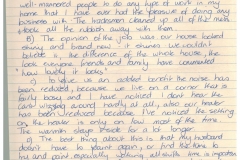 well-mannered people to do any type of work in my
home that I have ever had the pleasure of doing any
business with. The tradesmen cleaned up all of the mess
& took all the rubbish away with them.
B) The opinion of the job was our house looked
shiny and brand new. It stunned we wouldn't
believe is the difference of the whole house, the
look everyone friends and family have commented
"how lovely it looks"
To give us an added benefit the noise has
been reduced, because we live on a corner that is
fairly busy, and I have noticed I don't hear the
cars whizzing around hardly at all, also our heater
has been reduced because I've noticed the setting
on the heater is only on low most of the time.
The warmth stays inside for a lot longer.
The best thing about this is that my husband
doesn't have to paint again, or find the time to
try and paint, especially nothing all his time is important